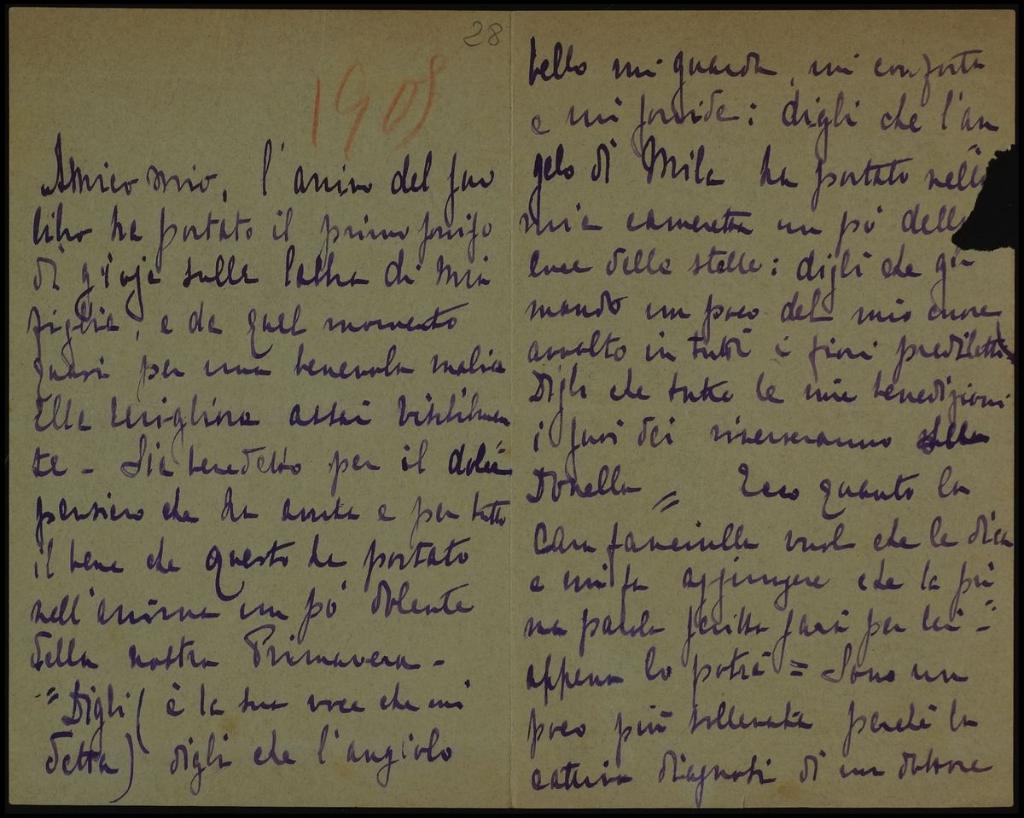 28
1908
Amico mio, l'arrivo del suo
libro ha portato il primo sorriso
di gioja sulle labbra di mia
figlia, e da quel momento
quasi per una benevola malia
Ella migliora assai visibilmen
te - Sia benedetto per il dolce
pensiero che ha avuto e per tutto
il bene che questo ha portato
nell'anima un po' dolente
della nostra Primavera -
"Digli (è la sua voce che mi
detta) digli che l'angiolo
bello mi guarda, mi conforta
e mi sorride: digli che l'an
gelo di Mila ha portato nella
mia cameretta un pò della
luce delle stelle: digli che gli
mando un poco del mio cuore
avvolto in tutti i fiori prediletti
Digli che tutte le mie benedizioni
i suoi dei riverseranno sulla
Donella" Ecco quanto la
cara fanciulla vuol che le dica
e mi fa aggiungere che la pri
ma parola scritta sarà per lei -
appena lo potrà = Sono un
poco più sollevata perché la
cattiva diagnosi di un dottore